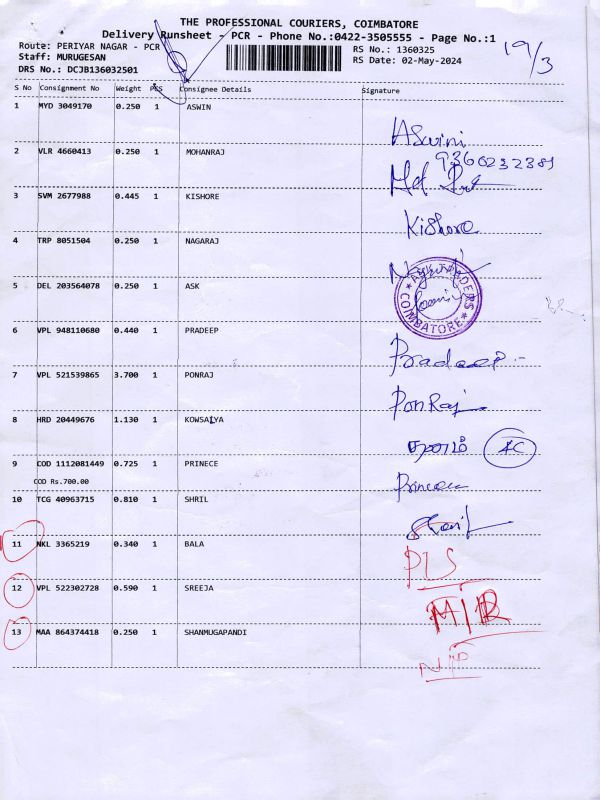 THE PROFESSIONAL COURIERS, COIMBATORE
Delivery Runsheet - PCR - Phone No.:0422-3505555 - Page No.:1
19/3
Route: PERIYAR NAGAR - PCR
RS No.: 1360325
Staff: MURUGESAN
RS Date: 02-May-2024
DRS No.: DCJB136032501
S No Consignment No Weight PCS Consignee Details Signature
1 MYD 3049170 0.250 1 ASWIN
Aswini
9360232389
2 VLR 4660413 0.250 1 MOHANRAJ
3 SVM 2677988 0.445 1 KISHORE
Kishore
4 TRP 8051504 0.250 1 NAGARAJ
5 DEL 203564078 0.250 1 ASK
ASK TRADERS
COIMBATORE
6 VPL 948110680 0.440 1 PRADEEP
Pradeep
7 VPL 521539865 3.700 1 PONRAJ
PonRaj
8 HRD 20449676 1.130 1 KOWSALYA
9 COD 1112081449 0.725 1 PRINECE
COD Rs.700.00
10 TCG 40963715 0.810 1 SHRIL
11 NKL 3365219 0.340 1 BALA
12 VPL 522302728 0.590 1 SREEJA
13 MAA 864374418 0.250 1 SHANMUGAPANDI